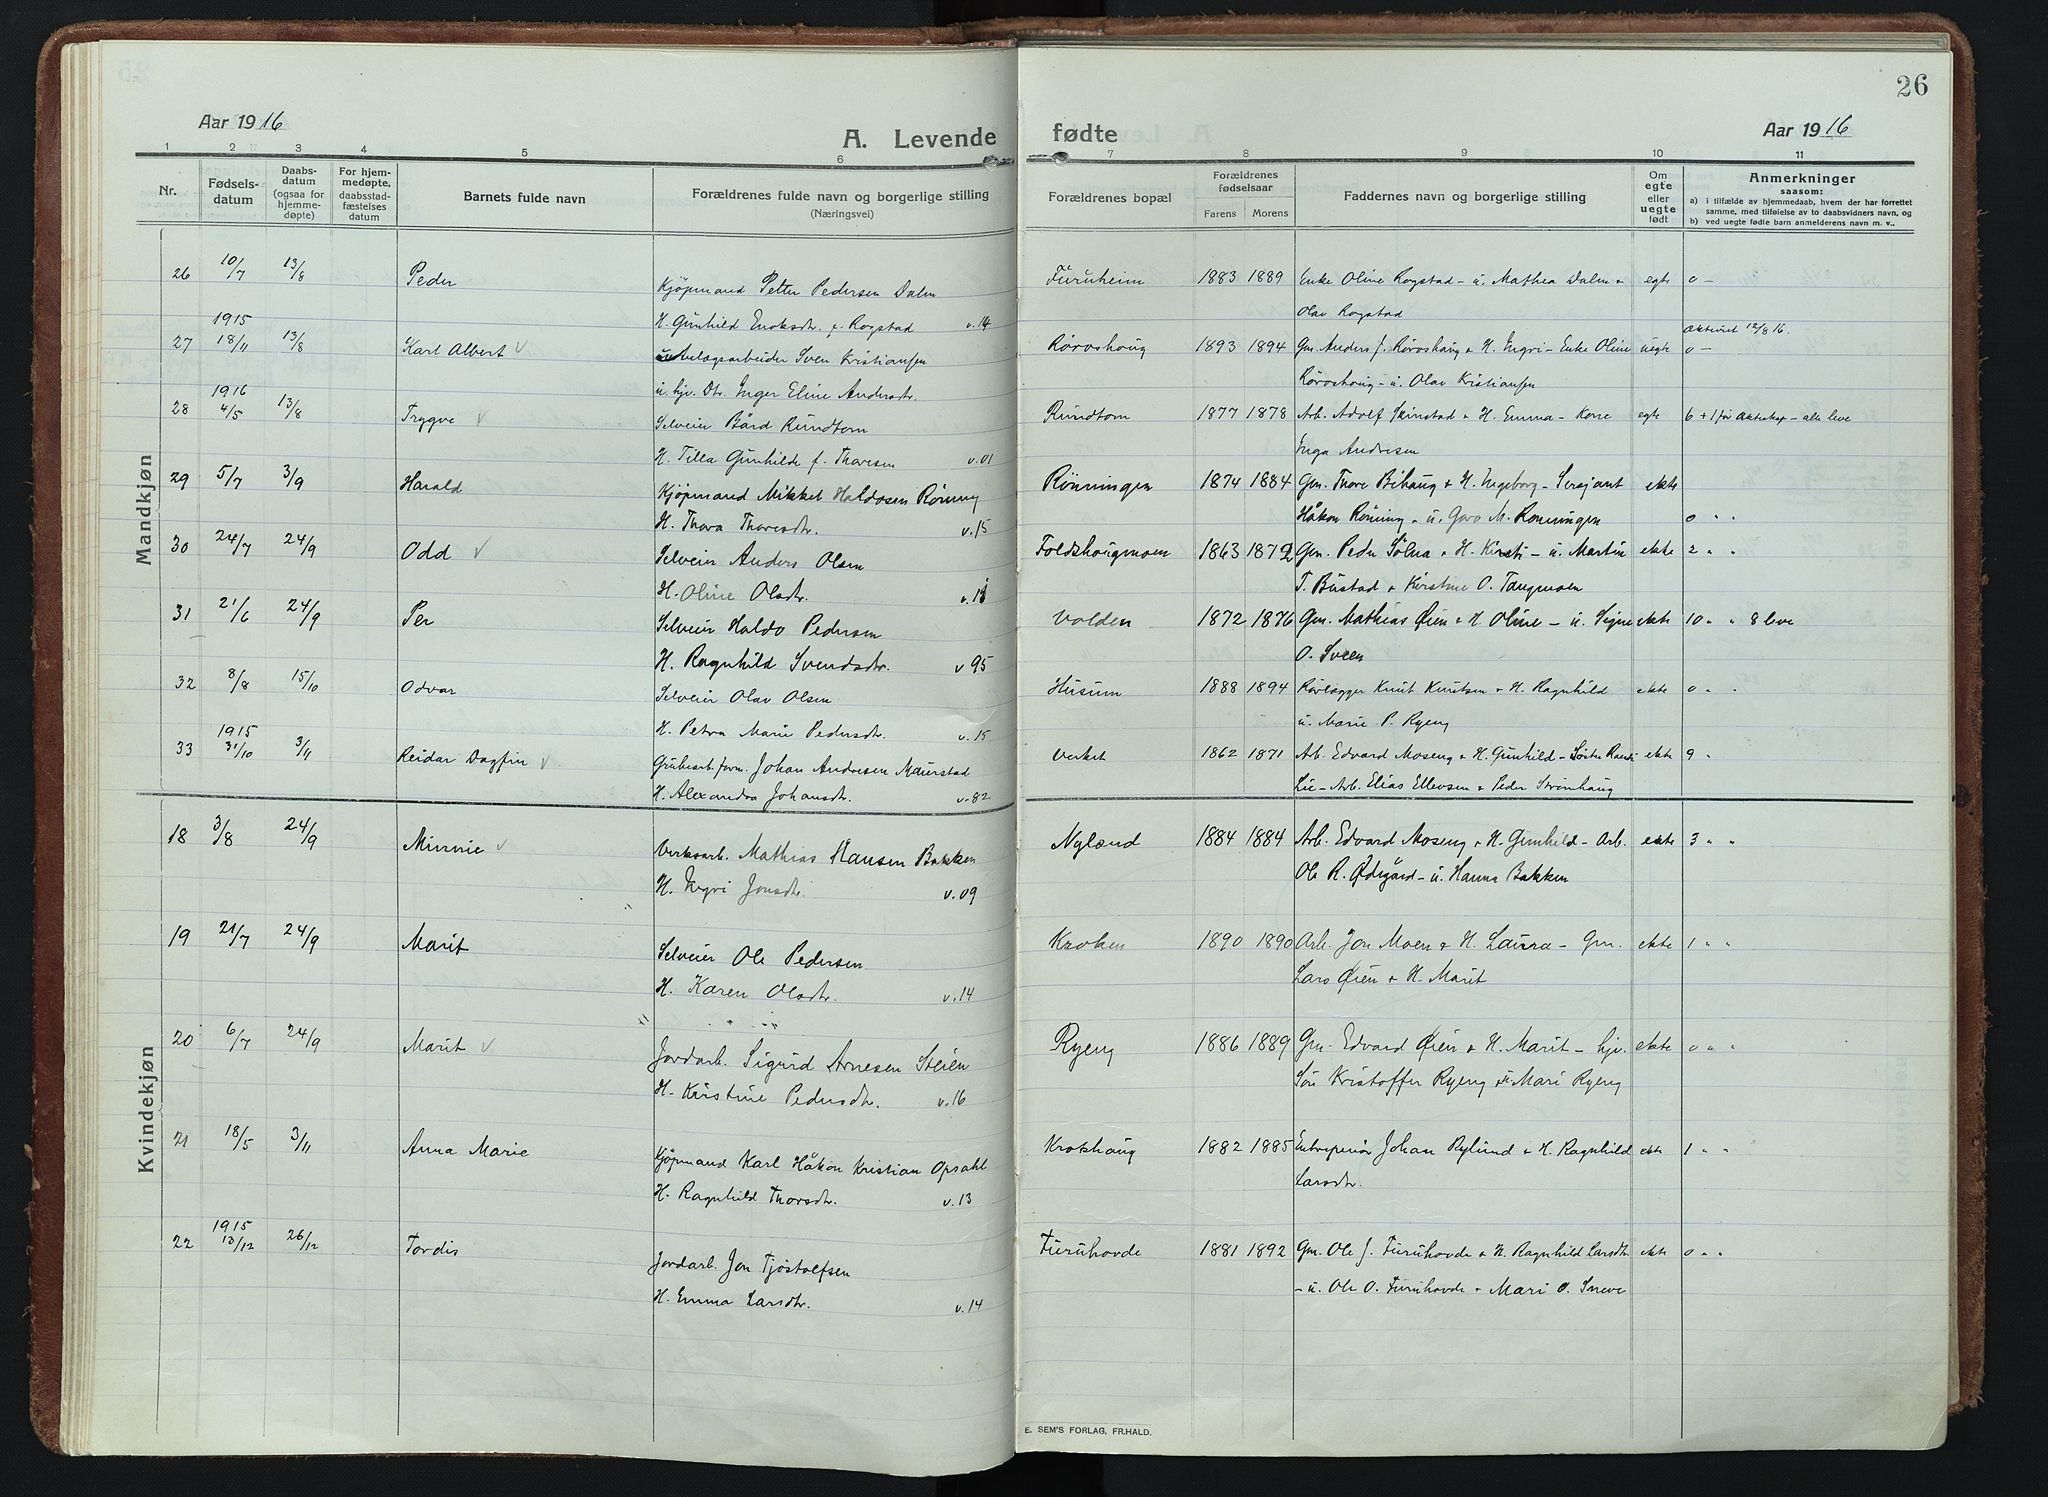 26
Aar 1916
A. Levende fødte
Aar 1916
1 2 3 4 5 6 7 8 9 10 11
Nr.
Fødsels-
datum
Daabs-
datum
(ogsaa for
hjemme-
døpte)
For hjem-
medøpte,
daabsstad-
fæstelses
datum
Barnets fulde navn
Forældrenes fulde navn og borgerlige stilling
(Næringsvei)
Forældrenes bopæl
Forældrenes
fødselsaar
Farens Morens
Faddernes navn og borgerlige stilling
Om
egte
eller
uegte
født
Anmerkninger
saasom:
a) i tilfælde av hjemmedaab, hvem der har forrettet
samme, med tilføielse av to daabsvidners navn, og
b) ved uegte fødte barn anmelderens navn m. v..
Mandkjøn
26 10/7 13/8 Peder Kjøpmand Petter Pedersen Dalen Furuheim 1883 1889 Enke Oline Rogstad - u. Mathea Dalen + egte 0 -
H. Gunhild Enoksdr. f. Rogstad v. 14 Olav Rogstad
1915
27 18/11 13/8 Karl Albert anlægsarbeider Sven Kristiansen Røroshaug 1893 1894 Gm. Anders J. Røroshaug + H. Ingri - Enke Oline uegte 0 -
12/8 16.
u. hjv. Dtr. Inger Eline Andersdr. Røroshaug - u. Olav Kristiansen
1916
28 4/5 13/8 Trygve Selveier Bård Rundtom Rundtom 1877 1878 Arb. Adolf Skinstad + H. Emma - Kone egte 6 + 1 før - alle leve
H. Tilla Gunhilde f. Thoresen v. 01 Inga Andresen
29 5/7 3/9 Harald Kjøpmand Mikkel Haldosen Røning Rønningen 1874 1884 Gm. Thore Bihaug + H. Ingeborg - Sersjant ekte
H. Thora Thoresdr. v. 15 Håkon Røning - u. Goro M. Rønningen 0 " "
30 24/7 24/9 Odd Selveier Anders Olsen Foldshaugmoen 1863 1872 Gm. Peder Sølna + H. Kirsti - u. Martin ekte 2 " "
H. Oline Olsdr. T. Bustad + Kirstine O. Tangmoen
31 21/6 24/9 Per Selveier Haldo Pedersen Volden 1872 1876 Gm. Mathias Øien + H. Oline - u. Signe ekte 10 " " 8 leve
H. Ragnhild Svendsdr. v 95 O. Sveen
32 8/8 15/10 Odvar Selveier Olav Olsen Husum 1888 1894 Rørlægger Knut Knutsen + H. Ragnhild ekte 0 " "
H. Petra Marie Pedersdr. v. 15 u. Marie P. Ryeng
1915
33 31/10 3/11 Reidar Dagfin Grubearb.form. Johan Andresen Maurstad Verket 1862 1871 Arb. Edvard Moseng + H. Gunhild - Søster Randi ekte 9 "
H. Alexandra Johansdr. v. 82 Lie - Arb. Elias Ellevsen + Peder Strømhaug
Kvindekjøn
18 3/8 24/9 Minnie Verksarb. Mathias Hansen Bakken Nyland 1884 1884 Arb. Edvard Moseng + H. Gunhild - Arb. ekte 3 " "
H. Ingri Jonsdr. v. 09 Ole R. Ødegård - u. Hanna Bakken
19 21/7 24/9 Marit Selveier Ole Pedersen Kroken 1890 1890 Arb. Jon Moen + H. Laura - Gm. ekte 1 " "
H. Karen Olsdr. v. 14 Lars Øien + H. Marit
20 6/7 24/9 Marit Jordarb. Sigurd Arnesen Steien Ryeng 1886 1889 Gm. Edvard Øien + H. Marit - hjv. ekte 0 " "
H. Kirstine Pedersdr. v. 16 Søn Kristoffer Ryeng + u. Mari Ryeng
21 18/5 3/11 Anna Marie Kjøpmand Karl Håkon Kristian Opsahl Krokhaug 1882 1885 Entreprenør Johan Nylund + H. Ragnhild ekte 1 " "
H. Ragnhild Thorsdr. v. 13 Larsdr.
1915
22 13/12 26/12 Tordis Jordarb. Jon Tjøstolfsen Furuhovde 1881 1892 Gm. Ole J. Furuhovde + H. Ragnhild Larsdr. ekte 0 " "
H. Emma Larsdr. v. 14 - u. Ole O. Furuhovde + Mari O. Sneve
E. SEM'S FORLAG, FR.HALD.